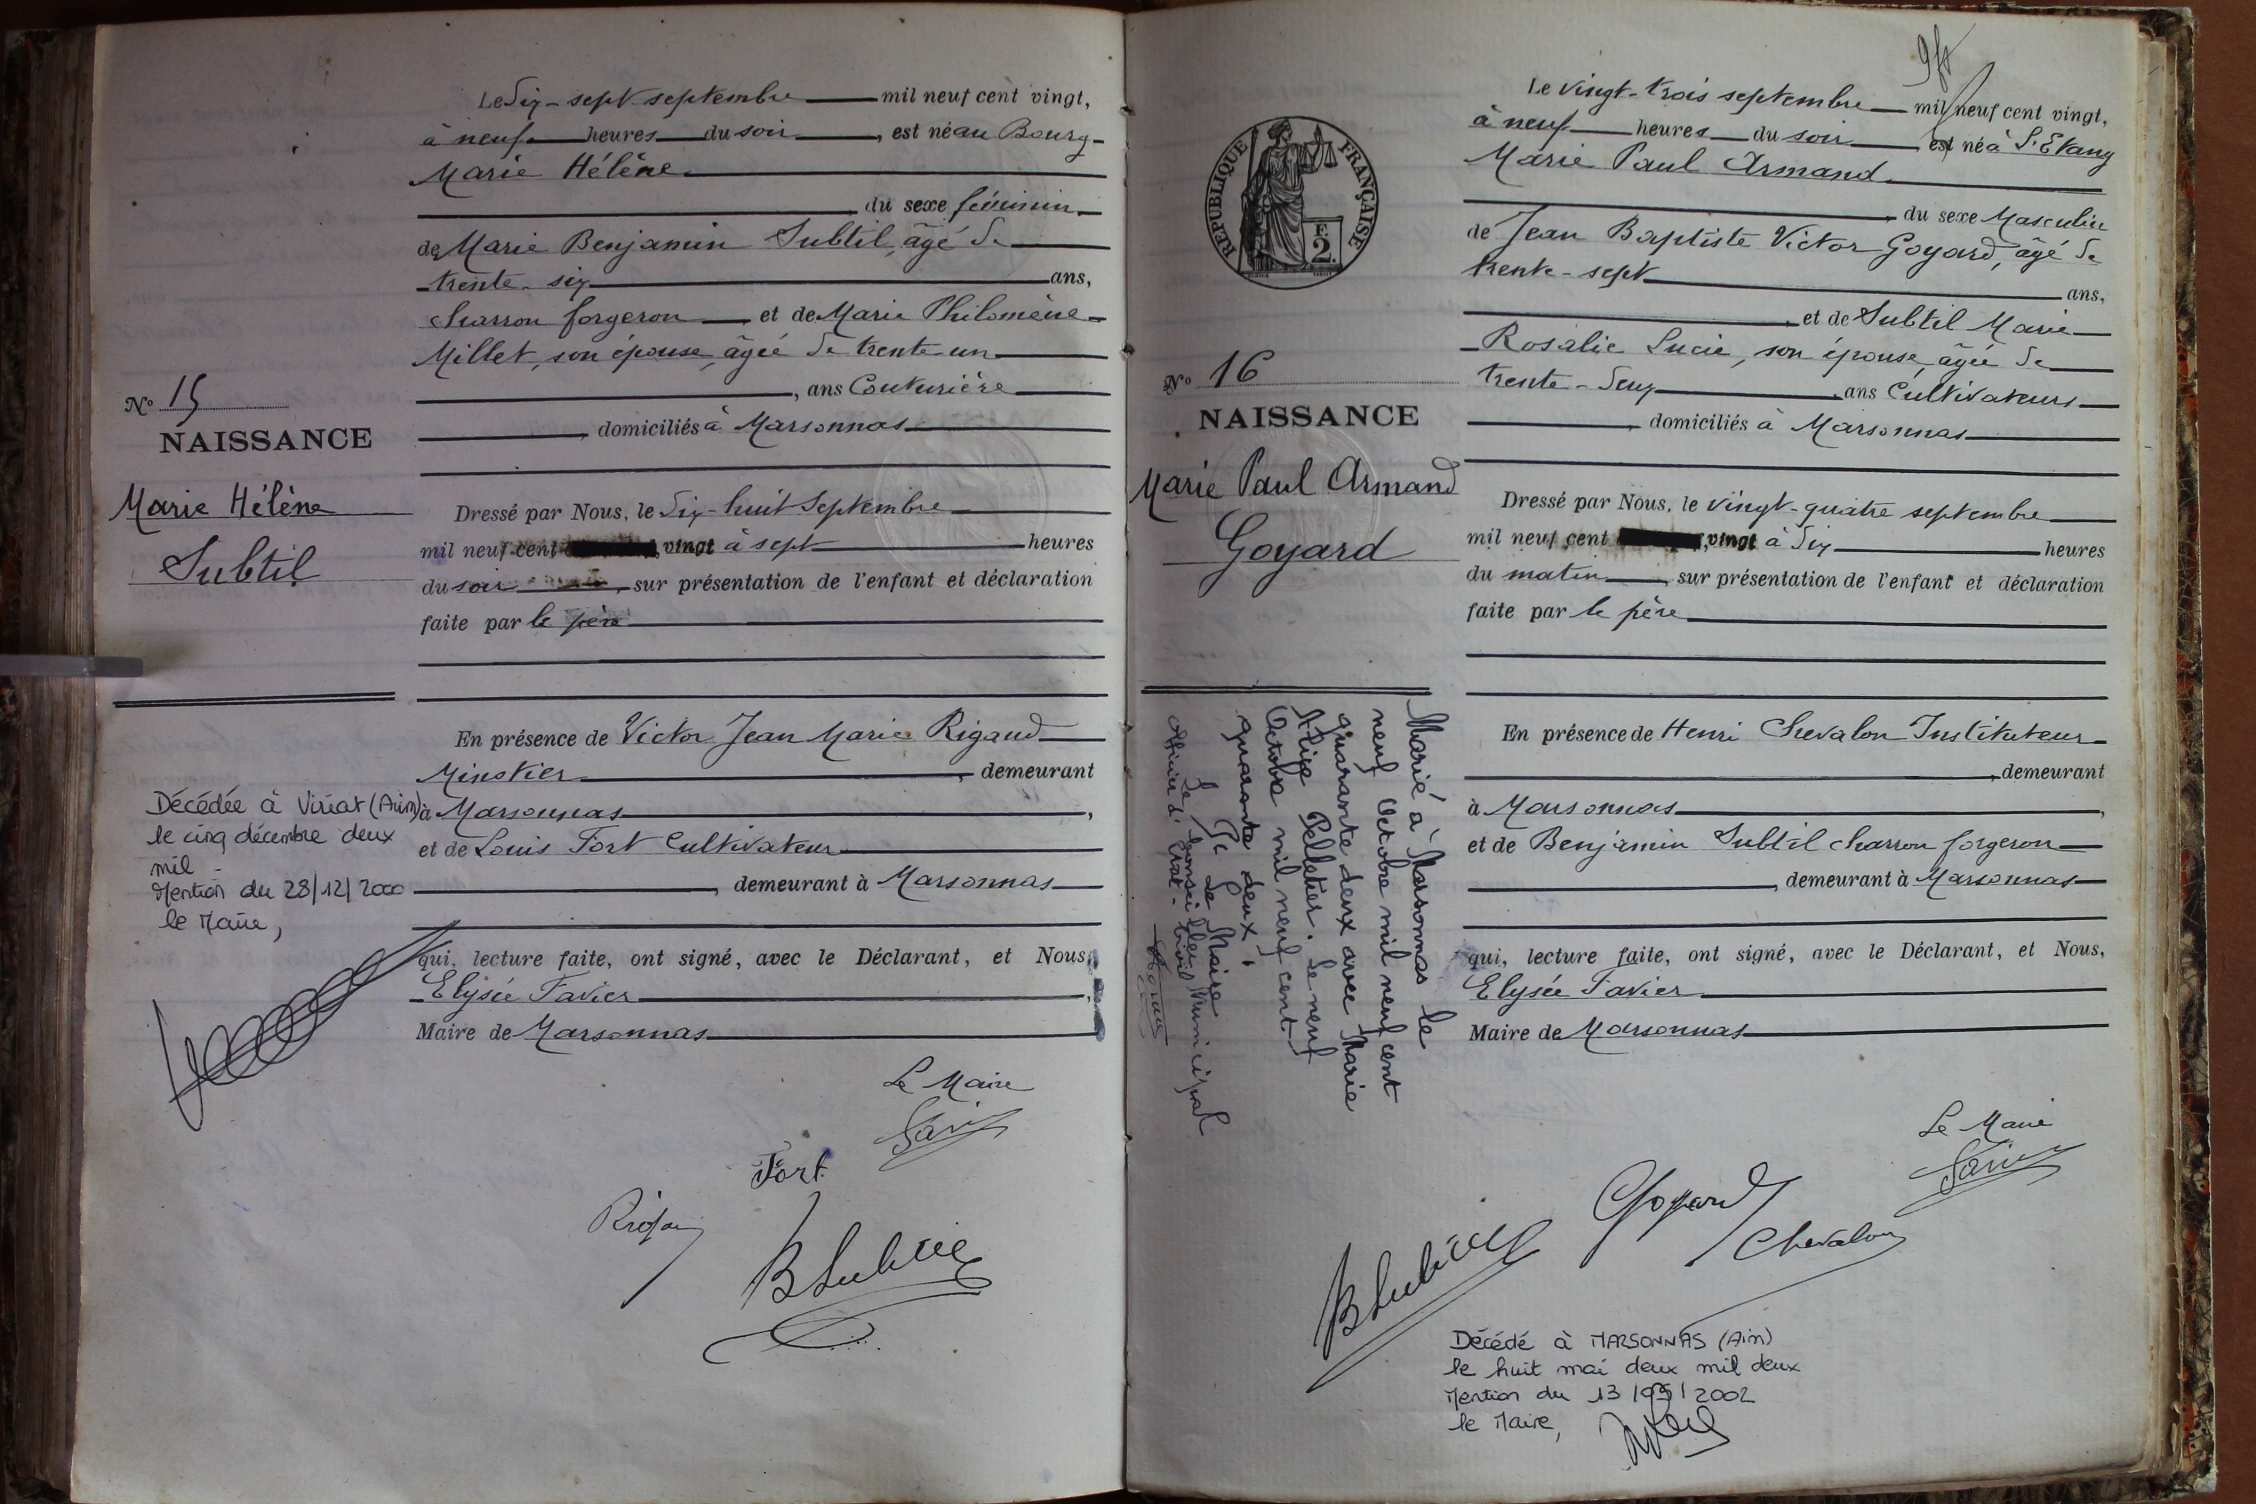 Le dix-sept septembre mil neuf cent vingt,
à neuf heures du soir, est né au Bourg
Marie Hélène
du sexe féminin
de Marie Benjamin Subtil, âgé de
trente-six ans,
charron forgeron et de Marie Philomène
Millet, son épouse, âgée de trente un
, ans Couturière
, domiciliés à Marsonnas
No 15
NAISSANCE
Marie Hélène
Subtil
Dressé par Nous, le dix-huit Septembre
mil neuf cent vingt à sept heures
du soir, sur présentation de l'enfant et déclaration
faite par le père
En présence de Victor Jean Marie Rigaud
Minotier, demeurant
à Marsonnas,
et de Louis Fort Cultivateur
, demeurant à Marsonnas
qui, lecture faite, ont signé, avec le Déclarant, et Nous,
Elysée Favier,
Maire de Marsonnas
Décédée à Viriat (Ain)
le cinq décembre deux
mil -
Mention du 28/12/2000
le Maire,
Le Maire
Favier
Fort
Rigaud
B Subtil
Le vingt-trois septembre mil neuf cent vingt,
à neuf heures du soir est né à L'Etang
Marie Paul Armand
, du sexe Masculin
de Jean Baptiste Victor Goyard, âgé de
trente-sept ans,
, et de Subtil Marie
Rosalie Lucie, son épouse, âgée de
trente-deux ans Cultivateurs
, domiciliés à Marsonnas
REPUBLIQUE FRANÇAISE
F.
2.
No 16
NAISSANCE
Marie Paul Armand
Goyard
Dressé par Nous, le vingt-quatre septembre
mil neuf cent vingt à dix heures
du matin, sur présentation de l'enfant et déclaration
faite par le père
En présence de Henri Chevalon Instituteur
, demeurant
à Marsonnas,
et de Benjamin Subtil charron forgeron
, demeurant à Marsonnas
qui, lecture faite, ont signé, avec le Déclarant, et Nous,
Elysée Favier
Maire de Marsonnas
Marié à Marsonnas le
neuf Octobre mil neuf cent
quarante deux avec Marie
Alice Pelletier. Le neuf
Octobre mil neuf cent
quarante deux,
Pr Le Maire
Le Conseiller Municipal
Officier d'Etat-Civil
Le Maire
Favier
Goyard
Chevalon
B Subtil
Décédé à MARSONNAS (Ain)
le huit mai deux mil deux
Mention du 13/05/2002
le Maire,